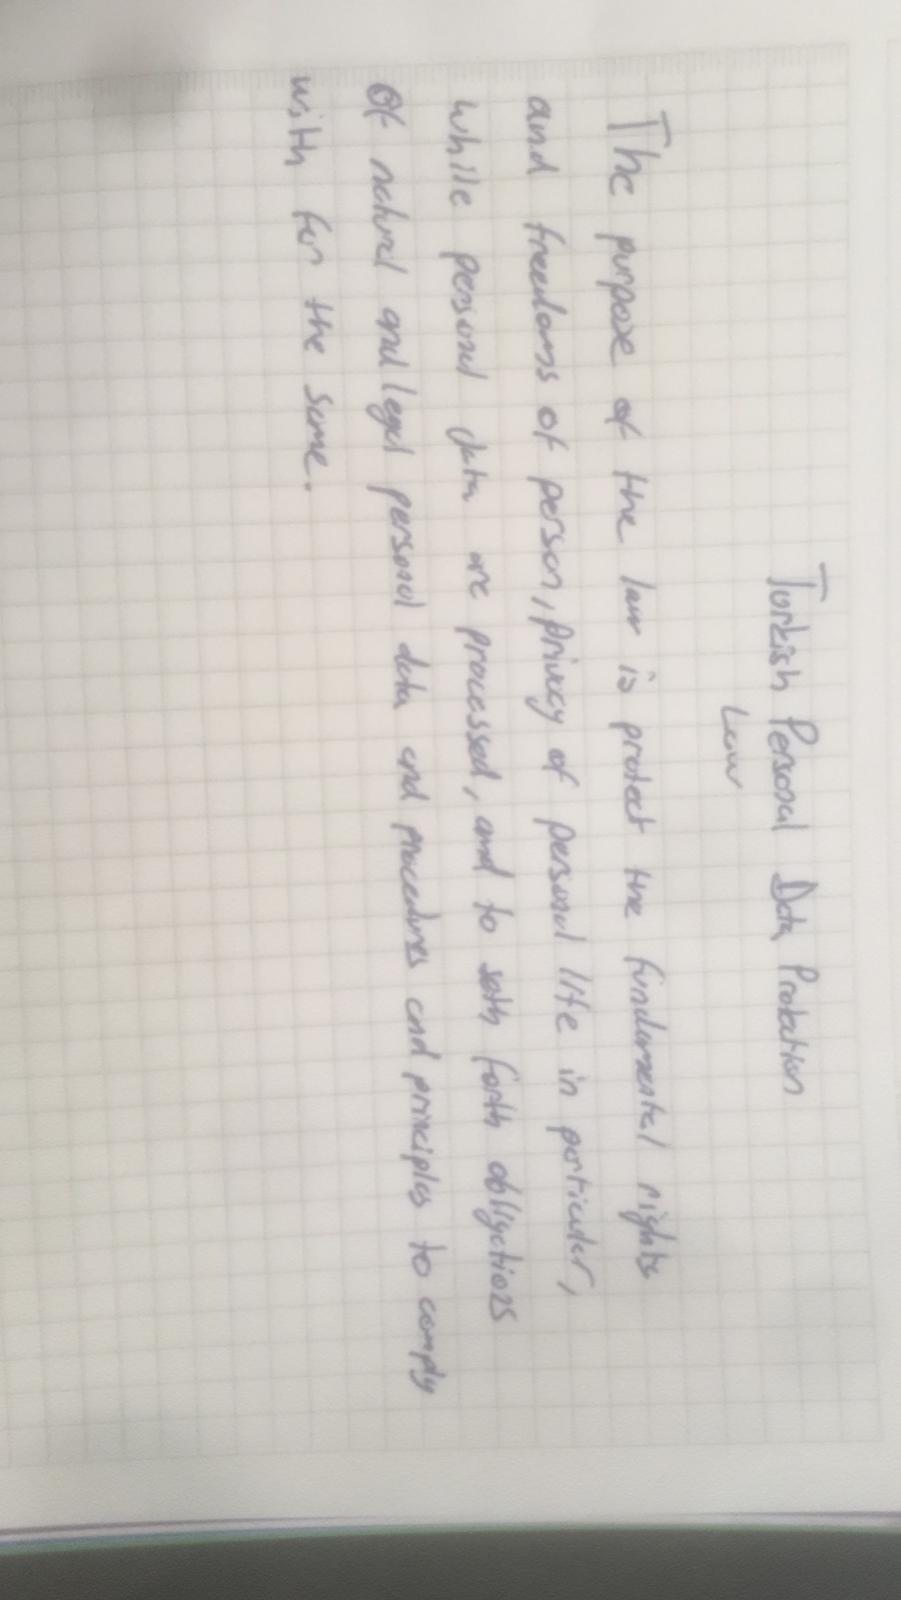 Turkish Personal Data Protection
Law
The purpose of the law is protect the fundamental rights
and freedoms of person, privacy of personal life in particular,
while personal data are processed, and to seth forth obligations
Of natural and legal personal data and procedures and principles to comply
with for the same.